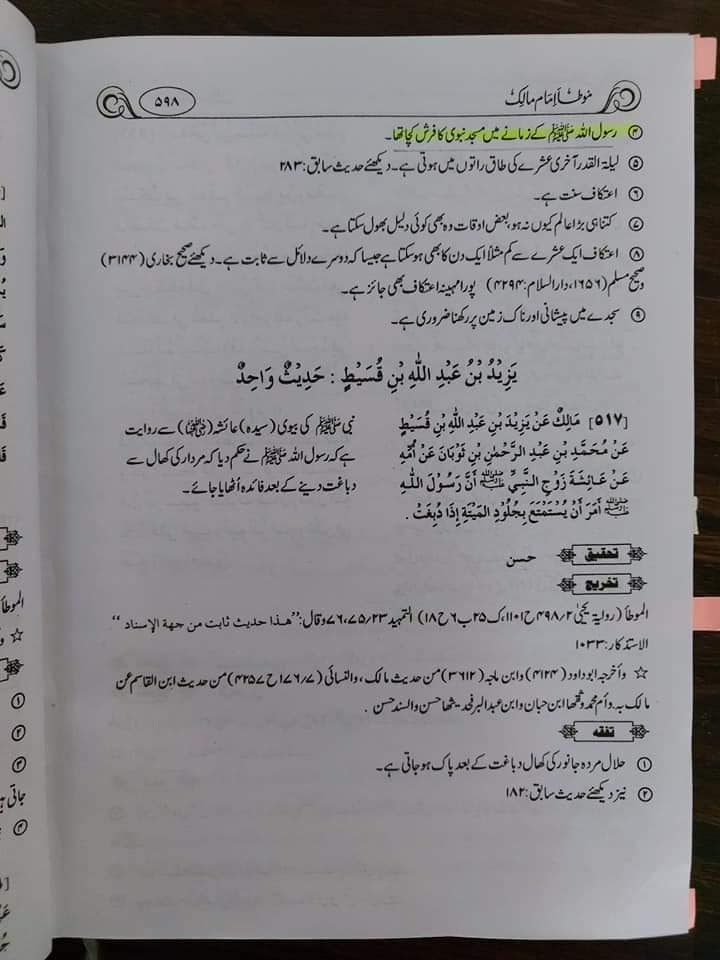 موطأ إمام مالك
۵۹۸
④ رسول اللہ ﷺ کے زمانے میں مسجد نبوی کا فرش کچا تھا۔
⑤ لیلۃ القدر آخری عشرے کی طاق راتوں میں ہوتی ہے۔ دیکھئے حدیث سابق: ۲۸۳
⑥ اعتکاف سنت ہے۔
⑦ کتنا ہی بڑا عالم کیوں نہ ہو، بعض اوقات وہ بھی کوئی دلیل بھول سکتا ہے۔
⑧ اعتکاف ایک عشرے سے کم مثلاً ایک دن کا بھی ہوسکتا ہے جیسا کہ دوسرے دلائل سے ثابت ہے۔ دیکھئے صحیح بخاری (۳۱۴۴)
وصحیح مسلم (۱۶۵۶، دارالسلام: ۴۲۹۴) پورا مہینہ اعتکاف بھی جائز ہے۔
⑨ سجدے میں پیشانی اور ناک زمین پر رکھنا ضروری ہے۔
يَزِيْدُ بْنُ عَبْدِ اللّٰهِ بْنِ قُسَيْطٍ : حَدِيْثٌ وَاحِدٌ
[۵۱۷] مَالِكٌ عَنْ يَزِيْدَ بْنِ عَبْدِ اللّٰهِ بْنِ قُسَيْطٍ
عَنْ مُحَمَّدِ بْنِ عَبْدِ الرَّحْمٰنِ بْنِ ثَوْبَانَ عَنْ أُمِّهِ
عَنْ عَائِشَةَ زَوْجِ النَّبِيِّ ﷺ أَنَّ رَسُوْلَ اللّٰهِ
ﷺ أَمَرَ أَنْ يُسْتَمْتَعَ بِجُلُوْدِ المَيْتَةِ إِذَا دُبِغَتْ .
نبی ﷺ کی بیوی (سیدہ) عائشہ (رضی اللہ عنہا) سے روایت
ہے کہ رسول اللہ ﷺ نے حکم دیا کہ مردار کی کھال سے
دباغت دینے کے بعد فائدہ اُٹھایا جائے۔
تحقیق حسن
تخریج
الموطأ (روایۃ یحییٰ ۴۹۸/۲ ح ۱۱۰۱، ک ۲۵ ب ۶ ح ۱۸) التمہید ۷۵/۲۳، ۷۶ وقال: "هذا حديث ثابت من جهة الإسناد"
الاستذکار: ۱۰۳۳
☆ وأخرجہ ابو داود (۴۱۲۴) وابن ماجہ (۳۶۱۲) من حدیث مالک، والنسائی (۱۷۶/۷ ح ۴۲۵۷) من حدیث ابن القاسم عن
مالک بہ. وأم محمد وثقہا ابن حبان وابن عبدالبر فحدیثہا حسن والسند حسن .
تفقه
① حلال مردہ جانور کی کھال دباغت کے بعد پاک ہوجاتی ہے۔
② نیز دیکھئے حدیث سابق: ۱۸۲